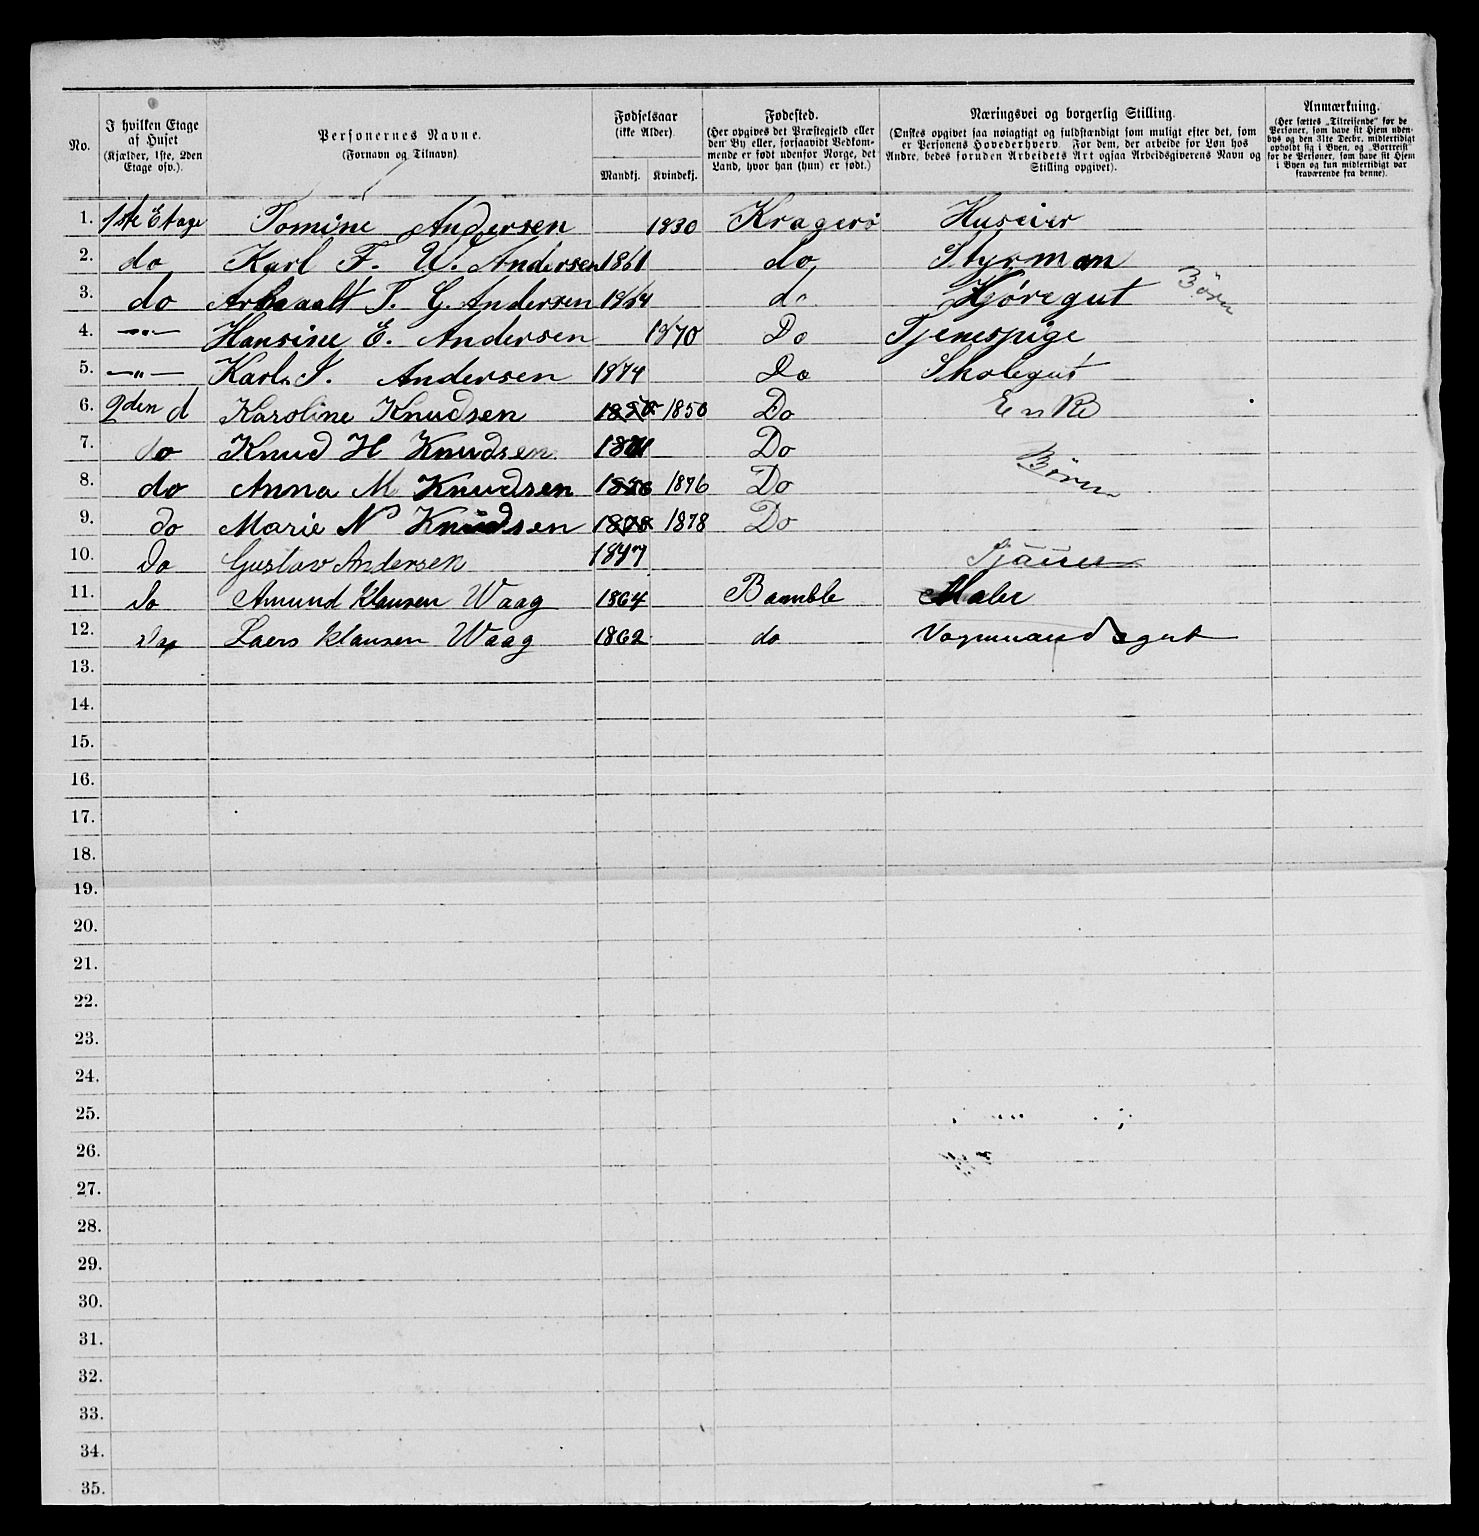 No.
I hvilken Etage af Huset (Kjælder, 1ste, 2den Etage osv.).
Personernes Navne. (Fornavn og Tilnavn)
Fødselsaar (ikke Alder)
Mandkj. Kvindekj.
Fødested. (Her opgives det Præstegjeld eller den By eller, forsaavidt Vedkommende er født udenfor Norge, det Land, hvor han (hun) er født.)
Næringsvei og borgerlig Stilling. (Ønskes opgivet saa nøiagtigt og fuldstændigt som muligt efter det, som er Personens Hovederhverv. For dem, der arbeide for Løn hos Andre, bedes foruden Arbeidets Art ogsaa Arbeidsgiverens Navn og Stilling opgivet).
Anmærkning. (Her sættes „Tilreisende" for de Personer, som have sit Hjem udenbys og den 31te Decbr. midlertidigt opholdt sig i Byen, og „Bortreist" for de Personer, som have sit Hjem i Byen og kun midlertidigt var fraværende fra denne).
1. 1ste Etage Tomine Andersen 1830 Kragerö Huseier
2. do Karl F. W. Andersen 1861 do Styrman
3. do T. G. Andersen 1864 do Kjöregut Börn
4. —"— Hansine E. Andersen 1870 Do Tjenespige
5. —"— Karl S. Andersen 1874 Do Skolegut
6. 2den d Karoline Knudsen 1850 1850 Do Enke
7. do Knud H Knudsen 1871 Do
8. do Anna M Knudsen 1876 Do Börn
9. do Marie N Knudsen 1878 1878 Do
10. Do Gustav Andersen 1847
11. Do Amund Klausen Waag 1864 Bamble Maler
12. Do Laers Klausen Waag 1862 do Vognmandsgut
13.
14.
15.
16.
17.
18.
19.
20.
21.
22.
23.
24.
25.
26.
27.
28.
29.
30.
31.
32.
33.
34.
35.